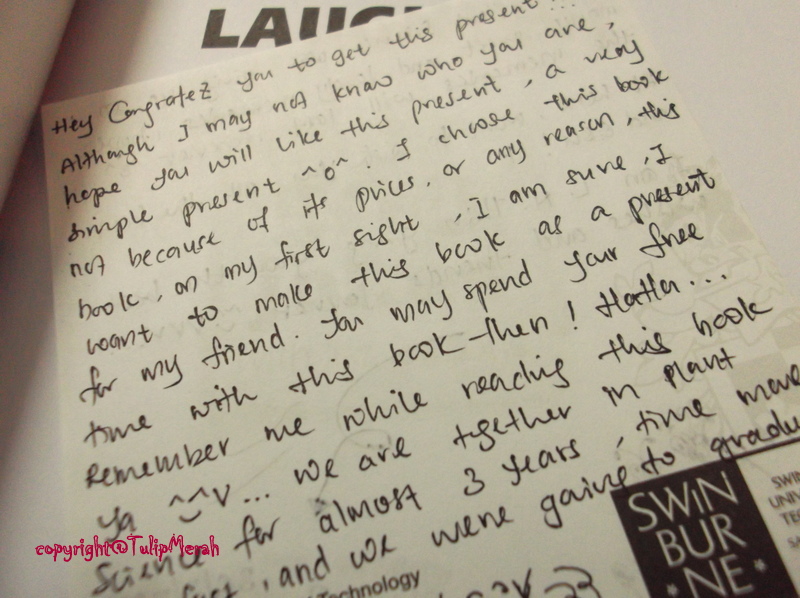 LAUG
Hey Congratez you to get this present...
Although I may not know who you are,
hope you will like this present, a very
simple present ^o^. I choose this book
not because of its prices, or any reason, this
book, on my first sight, I am sure, I
want to make this book as a present
for my friend. You may spend your free
time with this book then! HaHa...
Remember me while reading this book
ya ^^v... we are together in plant
Science for almost 3 years, time move
, and we were going to gradu
SWIN
BUR
*NE*
SWIN
UNIV
TEC
SA
Technology
copyright@TulipMerah